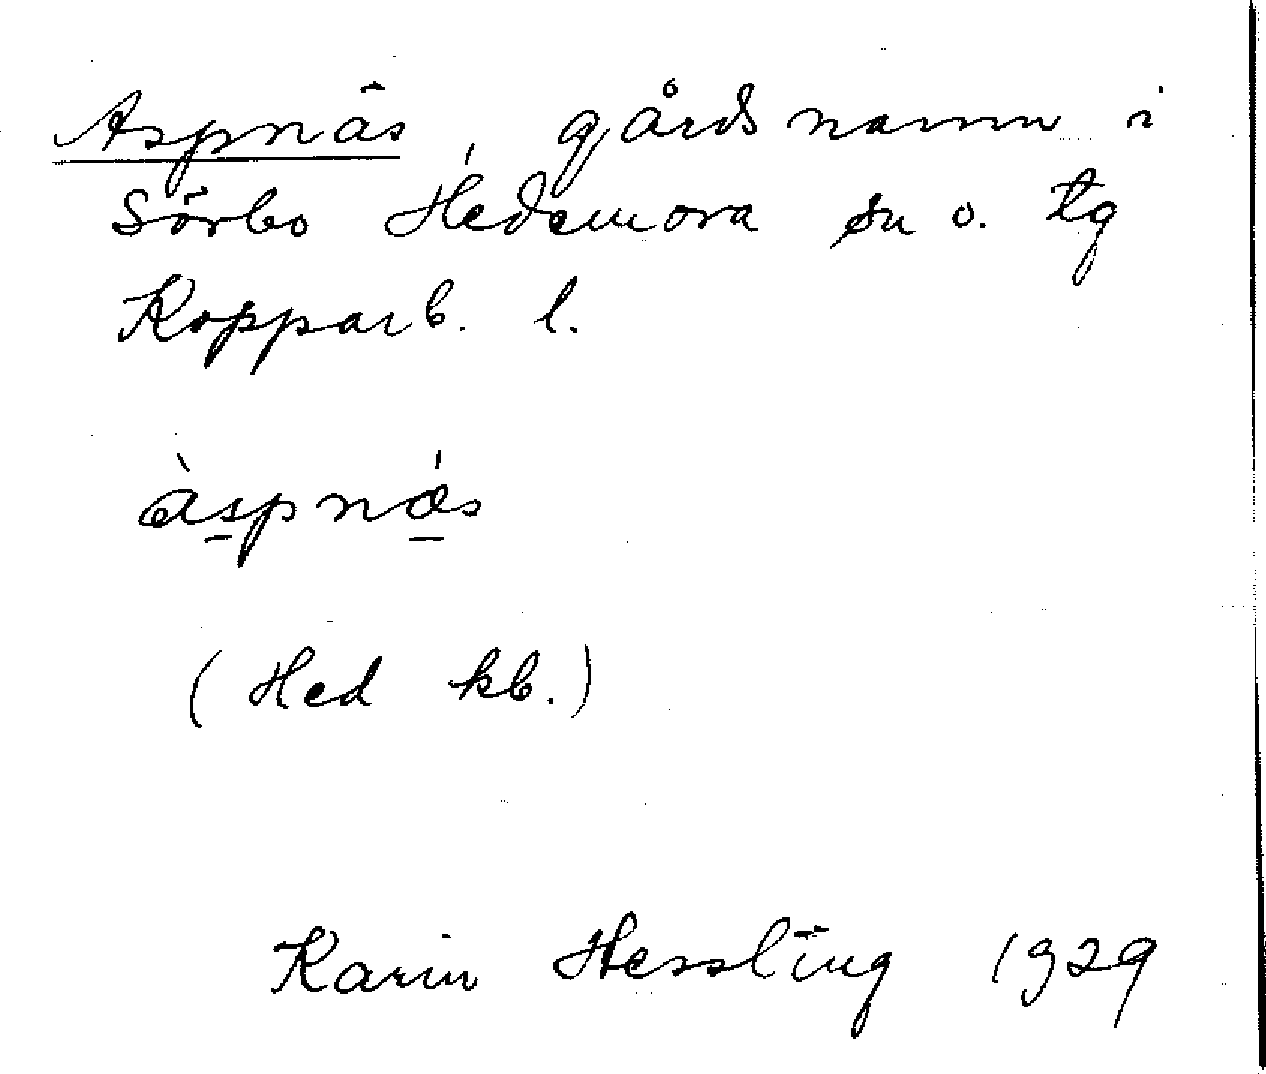 Aspnäs, gårdsnamn i
Sörbo Hedemora sn o. tg
Kopparb. l.
àspnǽs
(Hed kb.)
Karin Hessling 1929